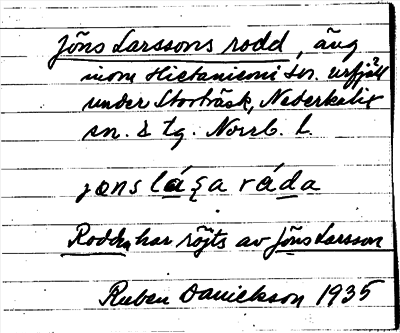 Jöns Larssons rodd, äng
inom Hietaniemi sn. urfjäll
under Storträsk, Nederkalix
sn. & tg. Norrb. l.
jøns láʂa ráda
Rodden har röjts av Jöns Larsson
Ruben Danielsson 1935